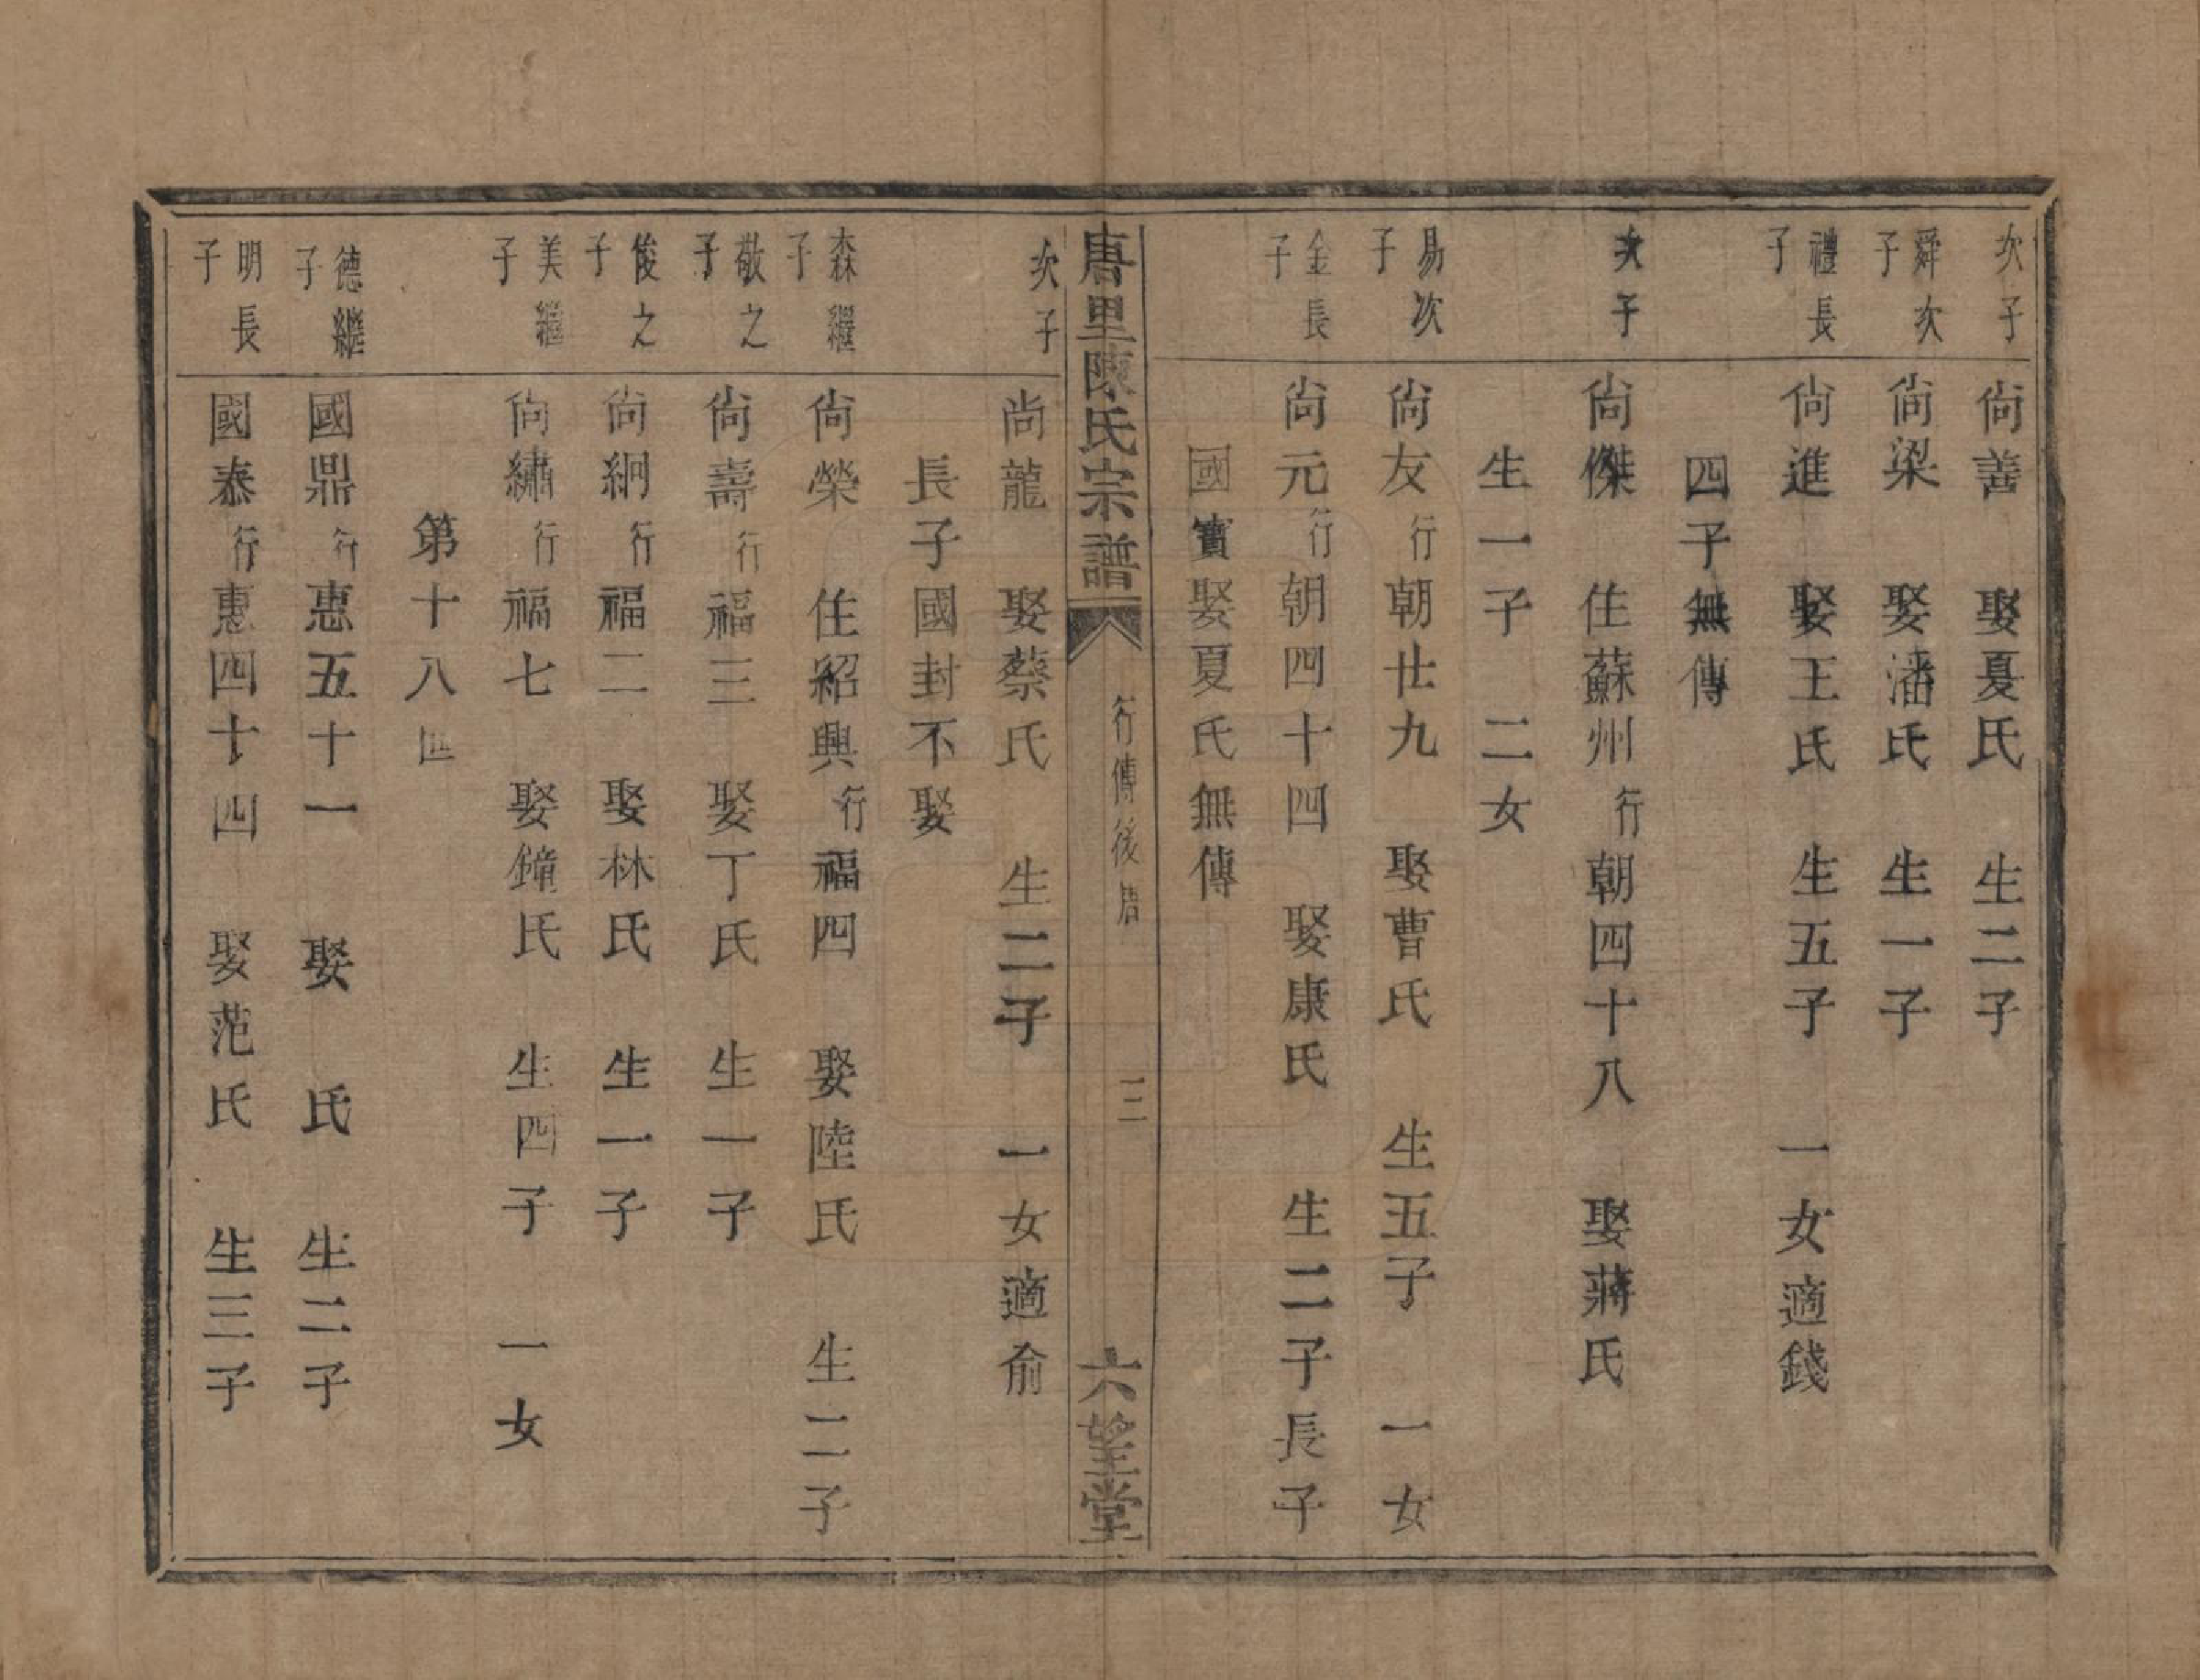 次子 尙善 娶夏氏 生二子
舜次子 尙梁 娶潘氏 生一子
禮長子 尙進 娶王氏 生五子 一女適錢
四子無傳
次子 尙傑 住蘇州行朝四十八 娶蔣氏
生一子 二女
易次子 尙友行朝廿九 娶曹氏 生五子 一女
金長子 尙元行朝四十四 娶康氏 生二子長子
國寶娶夏氏無傳
唐里陳氏宗譜 行傳後唐 三 六望堂
次子 尙龍 娶蔡氏 生二子 一女適俞
長子國封不娶
森繼子 尙榮 住紹興行福四 娶陸氏 生二子
敬之子 尙壽行福三 娶丁氏 生一子
俊之子 尙絅行福二 娶林氏 生一子
美繼子 尙繡行福七 娶鐘氏 生四子 一女
第十八世
德繼子 國鼎行惠五十一 娶 氏 生二子
明長子 國泰行惠四十四 娶范氏 生三子